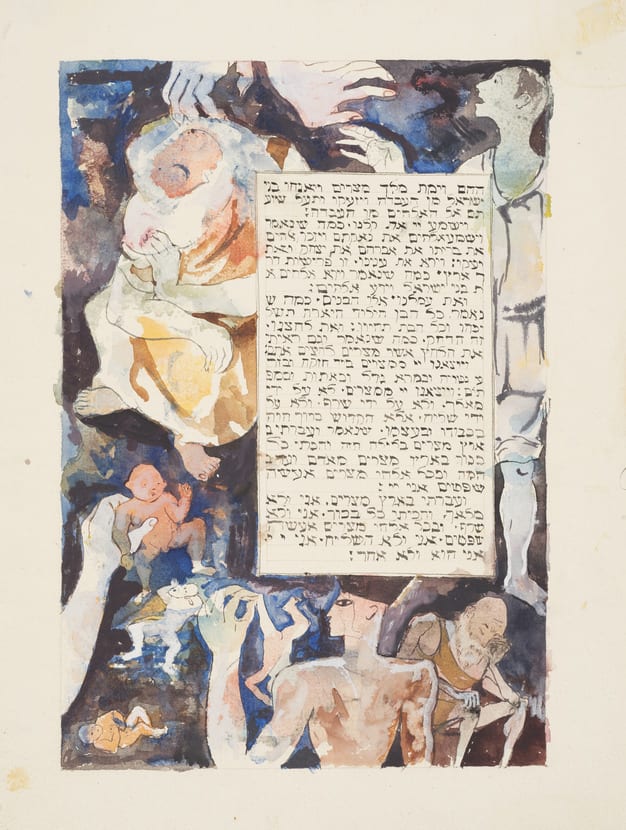 ההם וימת מלך מצרים ויאנחו בני
ישראל מן העבדה ויזעקו ותעל שוע
תם אל האלהים מן העבדה:
וישמע יי את קלנו כמה שנאמר
וישמע אלהים את נאקתם ויזכר אלהים
את בריתו את אברהם את יצחק ואת
יעקב: וירא את ענינו זו פרישות דר
ך ארץ כמה שנאמר וירא אלהים א
ת בני ישראל וידע אלהים:
ואת עמלנו אלו הבנים· כמה ש
נאמר כל הבן הילוד היארה תשל
יכהו וכל הבת תחיון: ואת לחצנו·
זה הדחק· כמה שנאמר וגם ראיתי
את הלחץ אשר מצרים לוחצים אתם:
ויוציאנו יי ממצרים ביד חזקה ובזרו
ע נטויה ובמרא גדל ובאתות ובמפ
תים· ויוציאנו יי ממצרים· לא על ידי
מלאך· ולא על ידי שרף· ולא על
ידי שליח· אלא הקדוש ברוך הוא
בכבודו ובעצמו· שנאמר ועברתי ב
ארץ מצרים בלילה הזה והכתי כל
בכור בארץ מצרים מאדם ועד ב
המה ובכל אלהי מצרים אעשה
שפטים אני יי:
ועברתי בארץ מצרים· אני ולא
מלאך· והכיתי כל בכור· אני ולא
שרף· ובכל אלהי מצרים אעשה
שפטים· אני ולא השליח· אני יי
אני הוא ולא אחר: